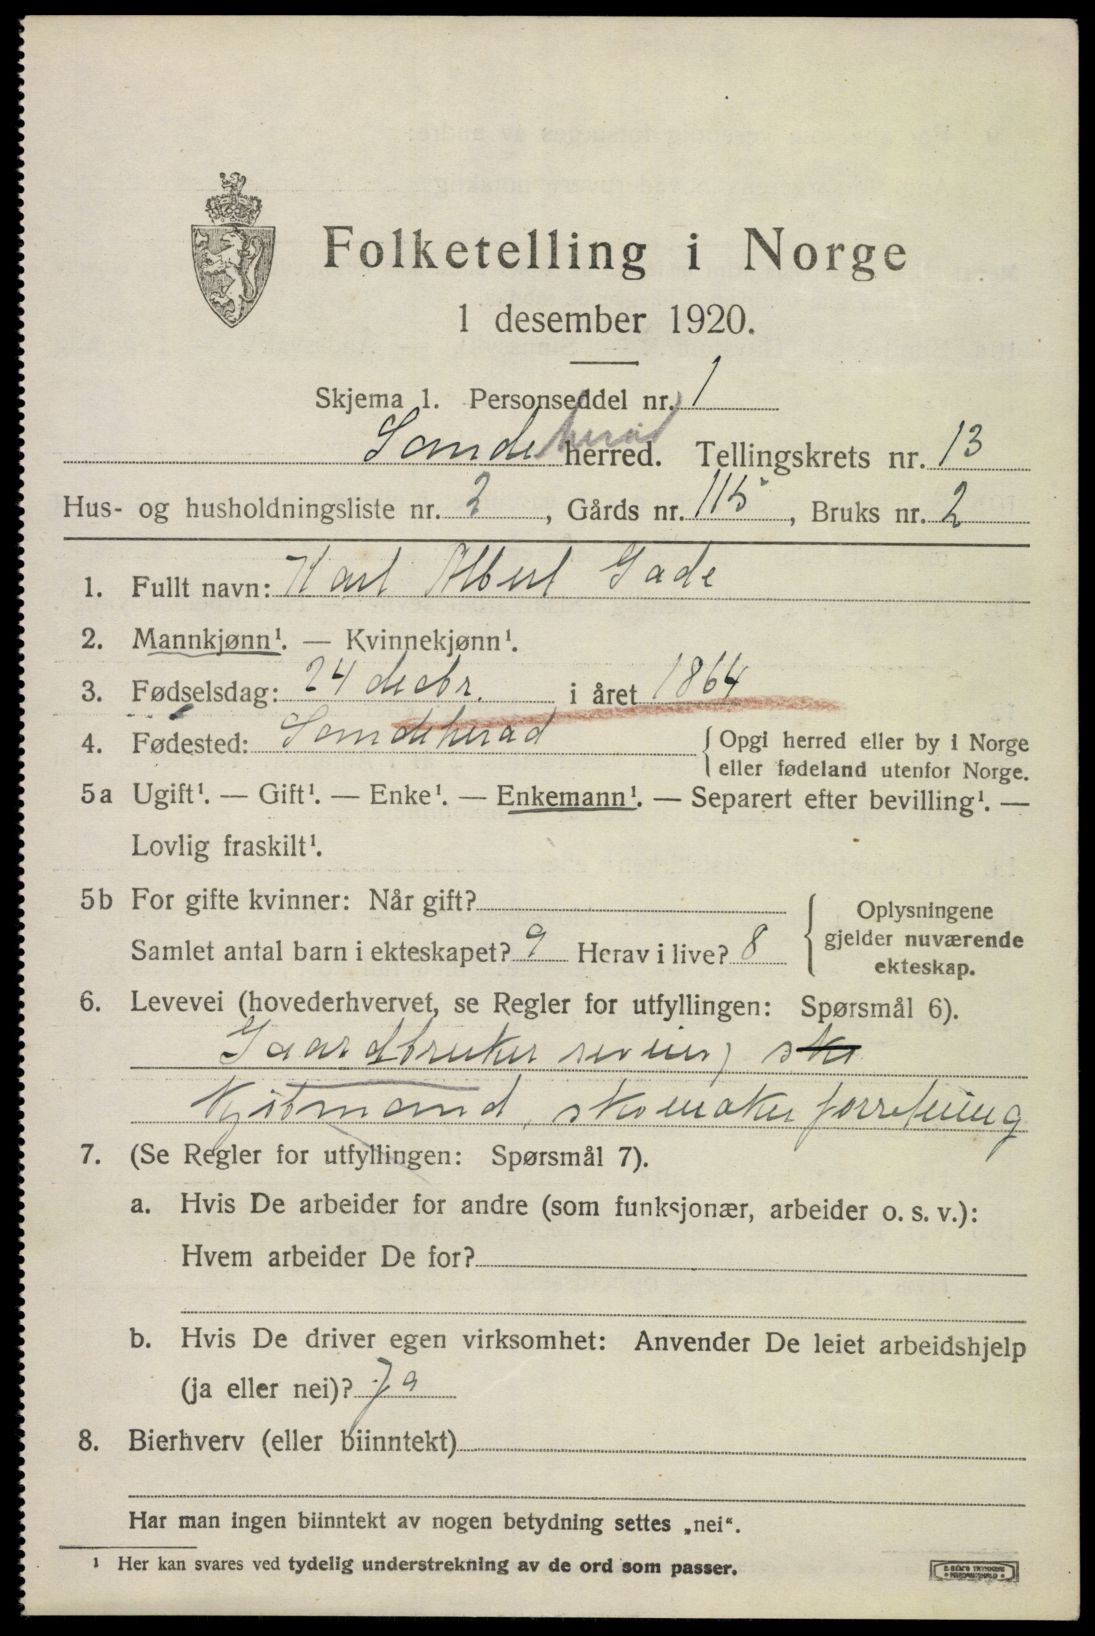 Folketelling i Norge
1 desember 1920.
Skjema 1. Personseddel nr. 1
Sandeherad herred. Tellingskrets nr. 13
Hus- og husholdningsliste nr. 2, Gårds nr. 115, Bruks nr. 2
1. Fullt navn: Karl Albert Gade
2. Mannkjønn¹. — Kvinnekjønn¹.
3. Fødselsdag: 24 decbr. i året 1864
4. Fødested: Sandeherad { Opgi herred eller by i Norge
eller fødeland utenfor Norge.
5a Ugift¹. — Gift¹. — Enke¹. — Enkemann¹. — Separert efter bevilling¹. —
Lovlig fraskilt¹.
5b For gifte kvinner: Når gift?
Samlet antal barn i ekteskapet? 9 Herav i live? 8
{ Oplysningene
gjelder nuværende
ekteskap.
6. Levevei (hovederhvervet, se Regler for utfyllingen: Spørsmål 6).
Gaardbruker sko
skomakerforretning
7. (Se Regler for utfyllingen: Spørsmål 7).
a. Hvis De arbeider for andre (som funksjonær, arbeider o. s. v.):
Hvem arbeider De for?
b. Hvis De driver egen virksomhet: Anvender De leiet arbeidshjelp
(ja eller nei)? Ja
8. Bierhverv (eller biinntekt)
Har man ingen biinntekt av nogen betydning settes „nei“.
¹ Her kan svares ved tydelig understrekning av de ord som passer.